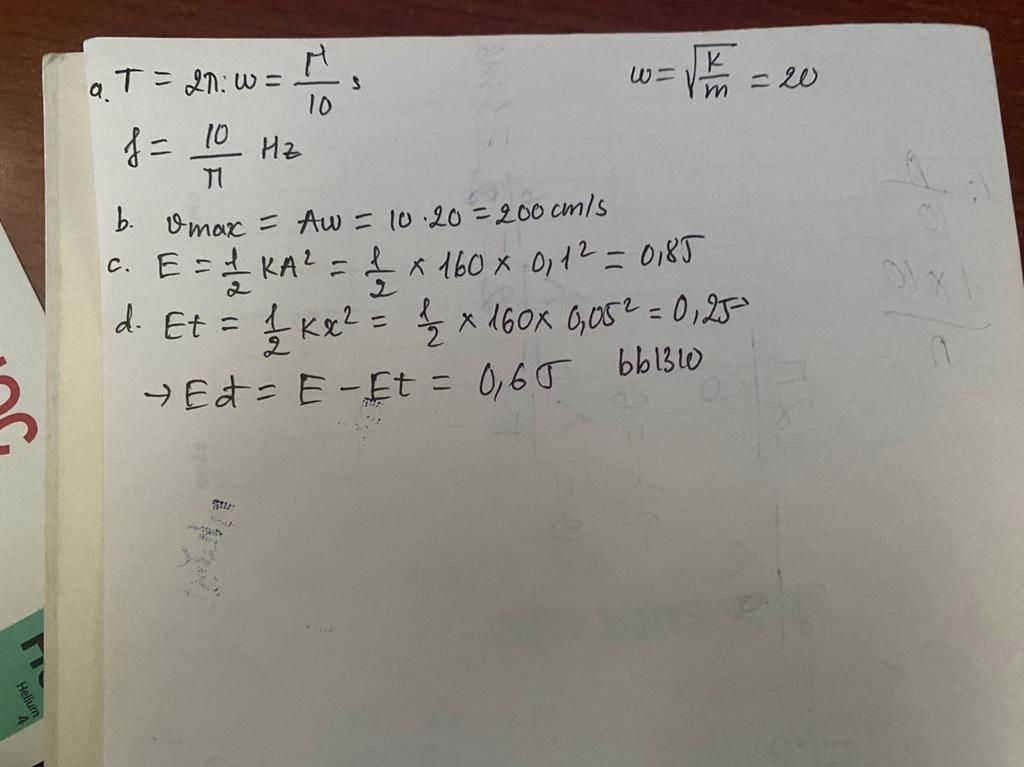 a. T = 2π : ω = π/10 s
ω = √(k/m) = 20
f = 10/π Hz
b. vmax = Aω = 10 · 20 = 200 cm/s
c. E = 1/2 KA² = 1/2 × 160 × 0,1² = 0,8J
d. Et = 1/2 Kx² = 1/2 × 160 × 0,05² = 0,2J
→ Eđ = E - Et = 0,6J
Helium
4